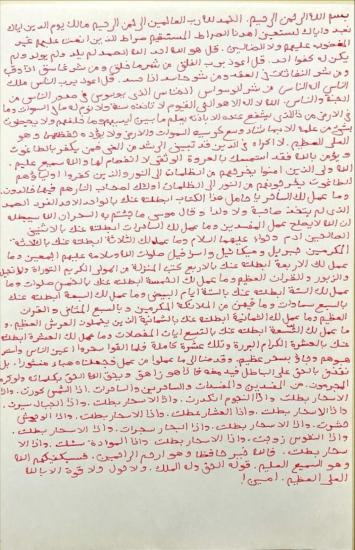 بسم الله الرحمن الرحيم. الحمد لله رب العالمين الرحمن الرحيم مالك يوم الدين اياك
نعبد واياك نستعين اهدنا الصراط المستقيم صراط الذين انعمت عليهم غير
المغضوب عليهم ولا الضالين. قل هو الله احد الله الصمد لم يلد ولم يولد ولم
يكن له كفوا احد. قل اعوذ برب الفلق من شر ما خلق ومن شر غاسق اذا وقب
ومن شر النفاثات في العقد ومن شر حاسد اذا حسد. قل اعوذ برب الناس ملك
الناس اله الناس من شر الوسواس الخناس الذي يوسوس في صدور الناس من
الجنة والناس. الله لا اله الا هو الحي القيوم لا تاخذه سنة ولا نوم له ما في السموات وما
في الارض من ذا الذي يشفع عنده الا باذنه يعلم ما بين ايديهم وما خلفهم ولا يحيطون
بشيء من علمه الا بما شاء وسع كرسيه السموات والارض ولا يؤده حفظهما وهو
العلي العظيم. لا اكراه في الدين قد تبين الرشد من الغي فمن يكفر بالطاغوت
ويؤمن بالله فقد استمسك بالعروة الوثقى لا انفصام لها والله سميع عليم.
الله ولي الذين امنوا يخرجهم من الظلمات الى النور والذين كفروا اولياؤهم
الطاغوت يخرجونهم من النور الى الظلمات اولئك اصحاب النار هم فيها خالدون.
وما عمل لك الساحر يا حامل هذا الكتاب ابطلته عنك بالواحد الاحد الفرد الصمد
الذي لم يتخذ صاحبة ولا ولدا وقال موسى ما جئتم به السحر ان الله سيبطله
ان الله لا يصلح عمل المفسدين وما عمل لك الساحرات ابطلته عنك بالاثنين
الصالحين ادم وحواء عليهما السلام وما عمل لك الثلاثة ابطلته عنك بالثلاثة
المكرمين جبريل وميكائيل واسرافيل صلوات الله وسلامه عليهم اجمعين وما
عمل لك الاربعة ابطلته عنك بالاربع كتب المنزلة من المولى الكريم التوراة والانجيل
والزبور والقران العظيم وما عمل لك الخمسة ابطلته عنك بالخمس صلوات وما
عمل لك الستة ابطلته عنك بالستة ايام البيض وما عمل لك السبعة ابطلته عنك
بالسبع سماوات وما فيهن من الملائكة المكرمين وبالسبع المثاني والقران
العظيم وما عمل لك الثمانية ابطلته عنك بالثمانية الذين يحملون العرش العظيم. و
ما عمل لك التسعة ابطلته عنك بالتسع ايات المفصلات وما عمل لك العشرة ابطلته
عنك بالعشرة الكرام البررة وتلك عشرة كاملة فلما القوا سحروا اعين الناس واستر
هبوهم وجاؤ بسحر عظيم. وقدمنا الى ما عملوا من عمل فجعلناه هباء منثورا. بل
نقذف بالحق على الباطل فيدمغه فاذا هو زاهق ويحق الله الحق بكلماته ولو كره
المجرمون. من المفسدين والمفسدات والساحرين والساحرات. اذا الشمس كورت. واذا
الاسحار بطلت. واذا النجوم انكدرت. واذا الاسحار بطلت. واذا الجبال سيرت.
واذا الاسحار بطلت. واذا العشار عطلت. واذا الاسحار بطلت. واذا الوحوش
حشرت. واذا الاسحار بطلت. واذا البحار سجرت. واذا الاسحار بطلت.
واذا النفوس زوجت. واذا الاسحار بطلت. واذا الموءدة سئلت. واذا الا
سحار بطلت. فالله خير حافظا وهو ارحم الراحمين. فسيكفيكهم الله
وهو السميع العليم. قوله الحق وله الملك. ولا حول ولا قوة الا بالله
العلي العظيم. امين!